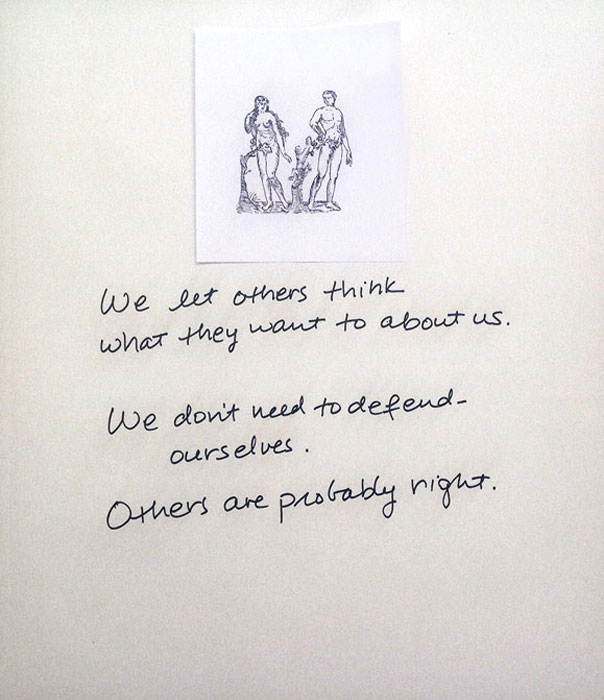 We let others think
what they want to about us.
We don't need to defend-
ourselves.
Others are probably right.